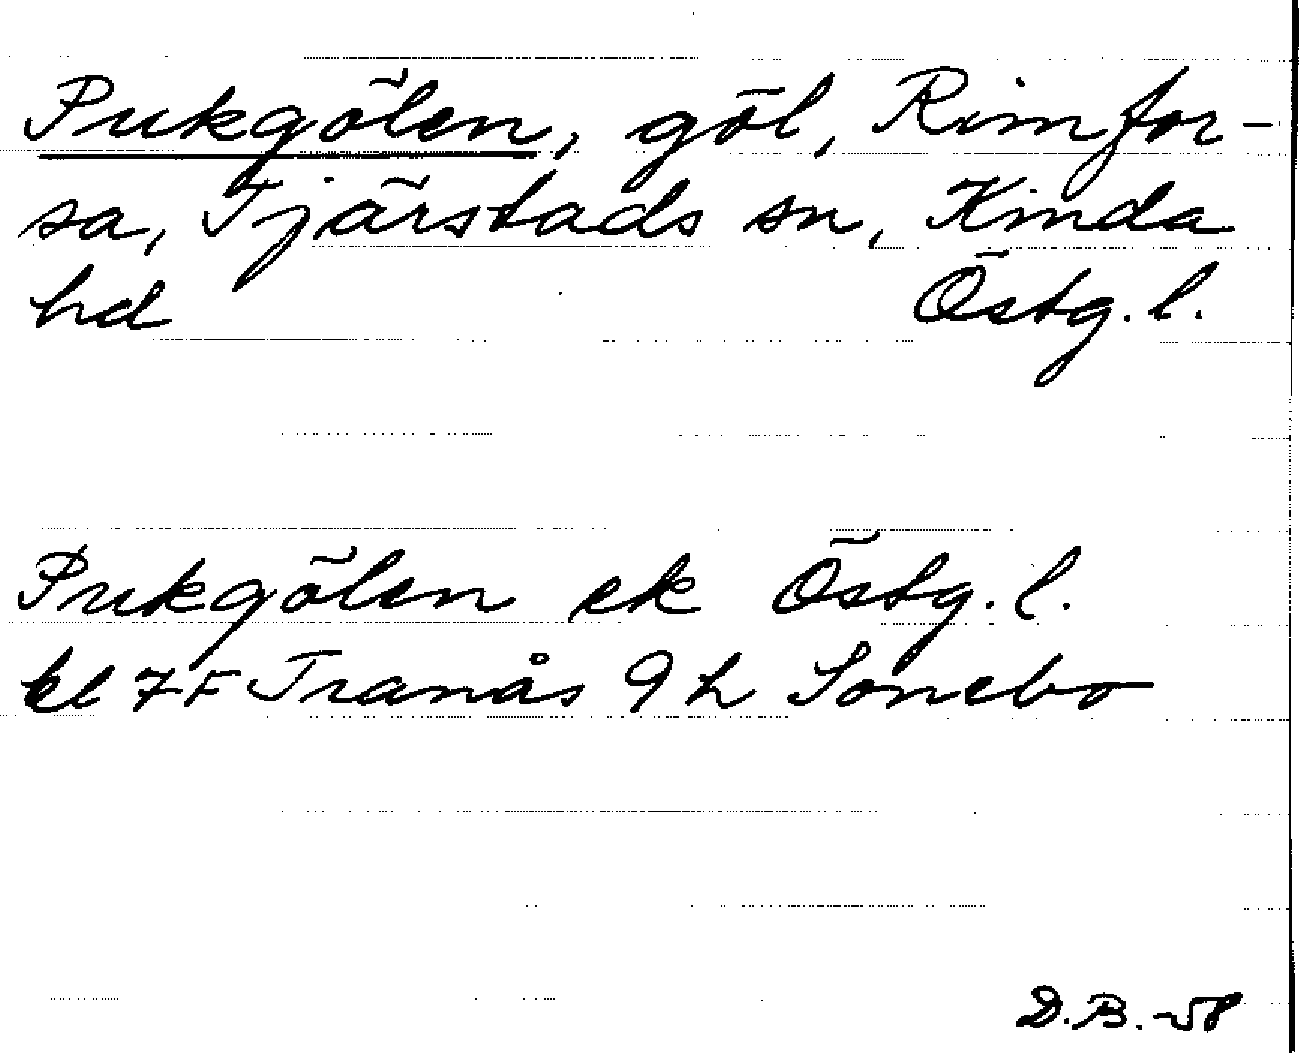 Pukgölen, göl, Rimfor-
sa, Tjärstads sn, Kinda
hd Östg. l.
Pukgölen ek Östg. l.
bl 7F Tranås 9 h Sonebo
D.B.-58